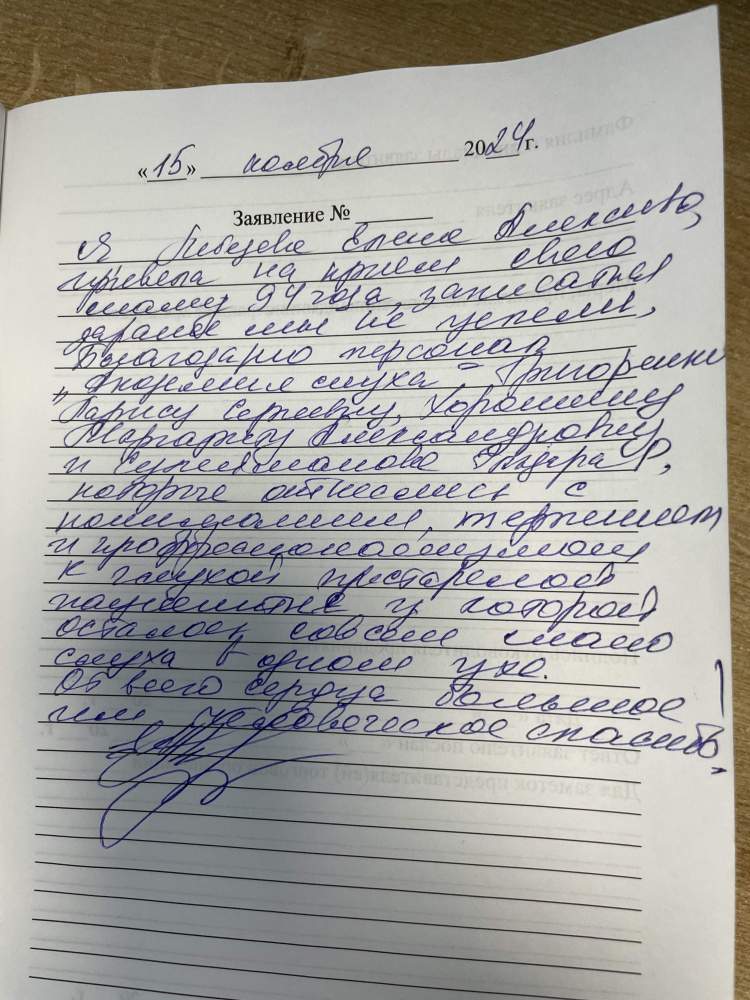 «15» ноября 2024 г.
Заявление №
Я Лебедева Елена Алексеевна,
привела на прием свою
маму 94 года, записаться
заранее мы не успели,
Благодарю персонал
"Академия слуха" - Григоренко
Ларису Сергеевну, Хорошилову
Маргариту Александровну
и Сулейманова Эльдара,
которые отнеслись с
пониманием, терпением
и профессионализмом
к глухой престарелой
пациентке, у которой
осталось совсем мало
слуха в одном ухе.
От всего сердца большое
им человеческое спасибо!